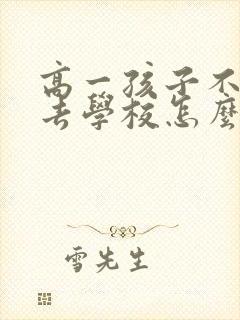 高一孩子不
去學校怎麼
雪先生